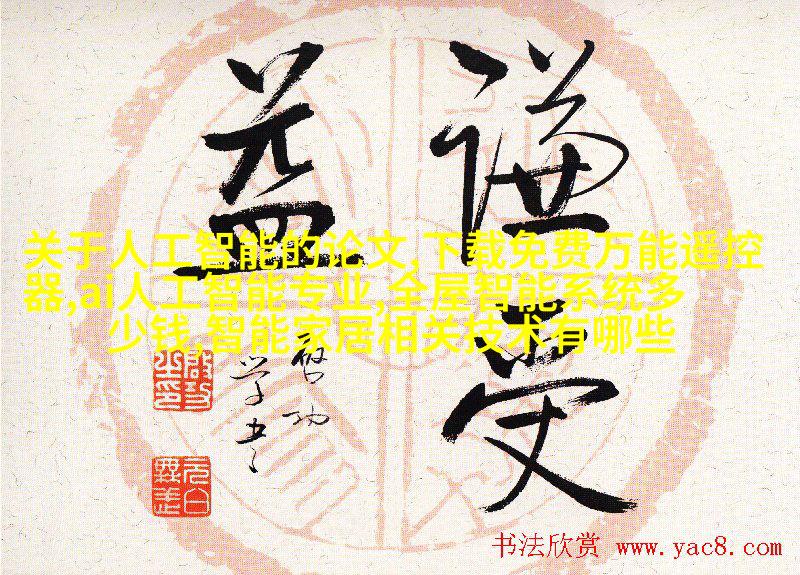 谦受
益
启功
学书
关于人工智能的论文,下载免费万能遥控
器,ai人工智能专业,全屋智能系统多
少钱,智能家居相关技术有哪些
书法欣赏 www.yac8.com